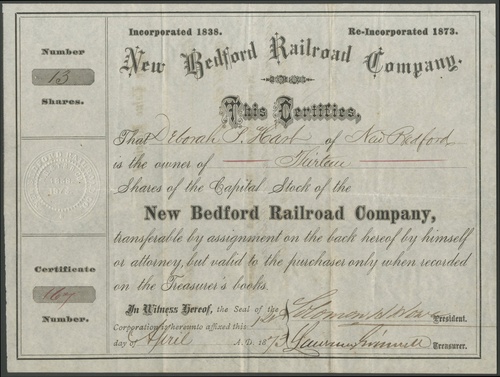 Incorporated 1838. Re-Incorporated 1873.
New Bedford Railroad Company.
Number
13
Shares.
This Certifies,
That Deborah S. Hart of New Bedford
is the owner of Thirteen
Shares of the Capital Stock of the
New Bedford Railroad Company,
transferable by assignment on the back hereof by himself
or attorney, but valid to the purchaser only when recorded
on the Treasurer's books.
Certificate
167
Number.
In Witness Hereof, the Seal of the
Corporation is hereunto affixed this 1st
day of April A. D. 1873
President.
Treasurer.